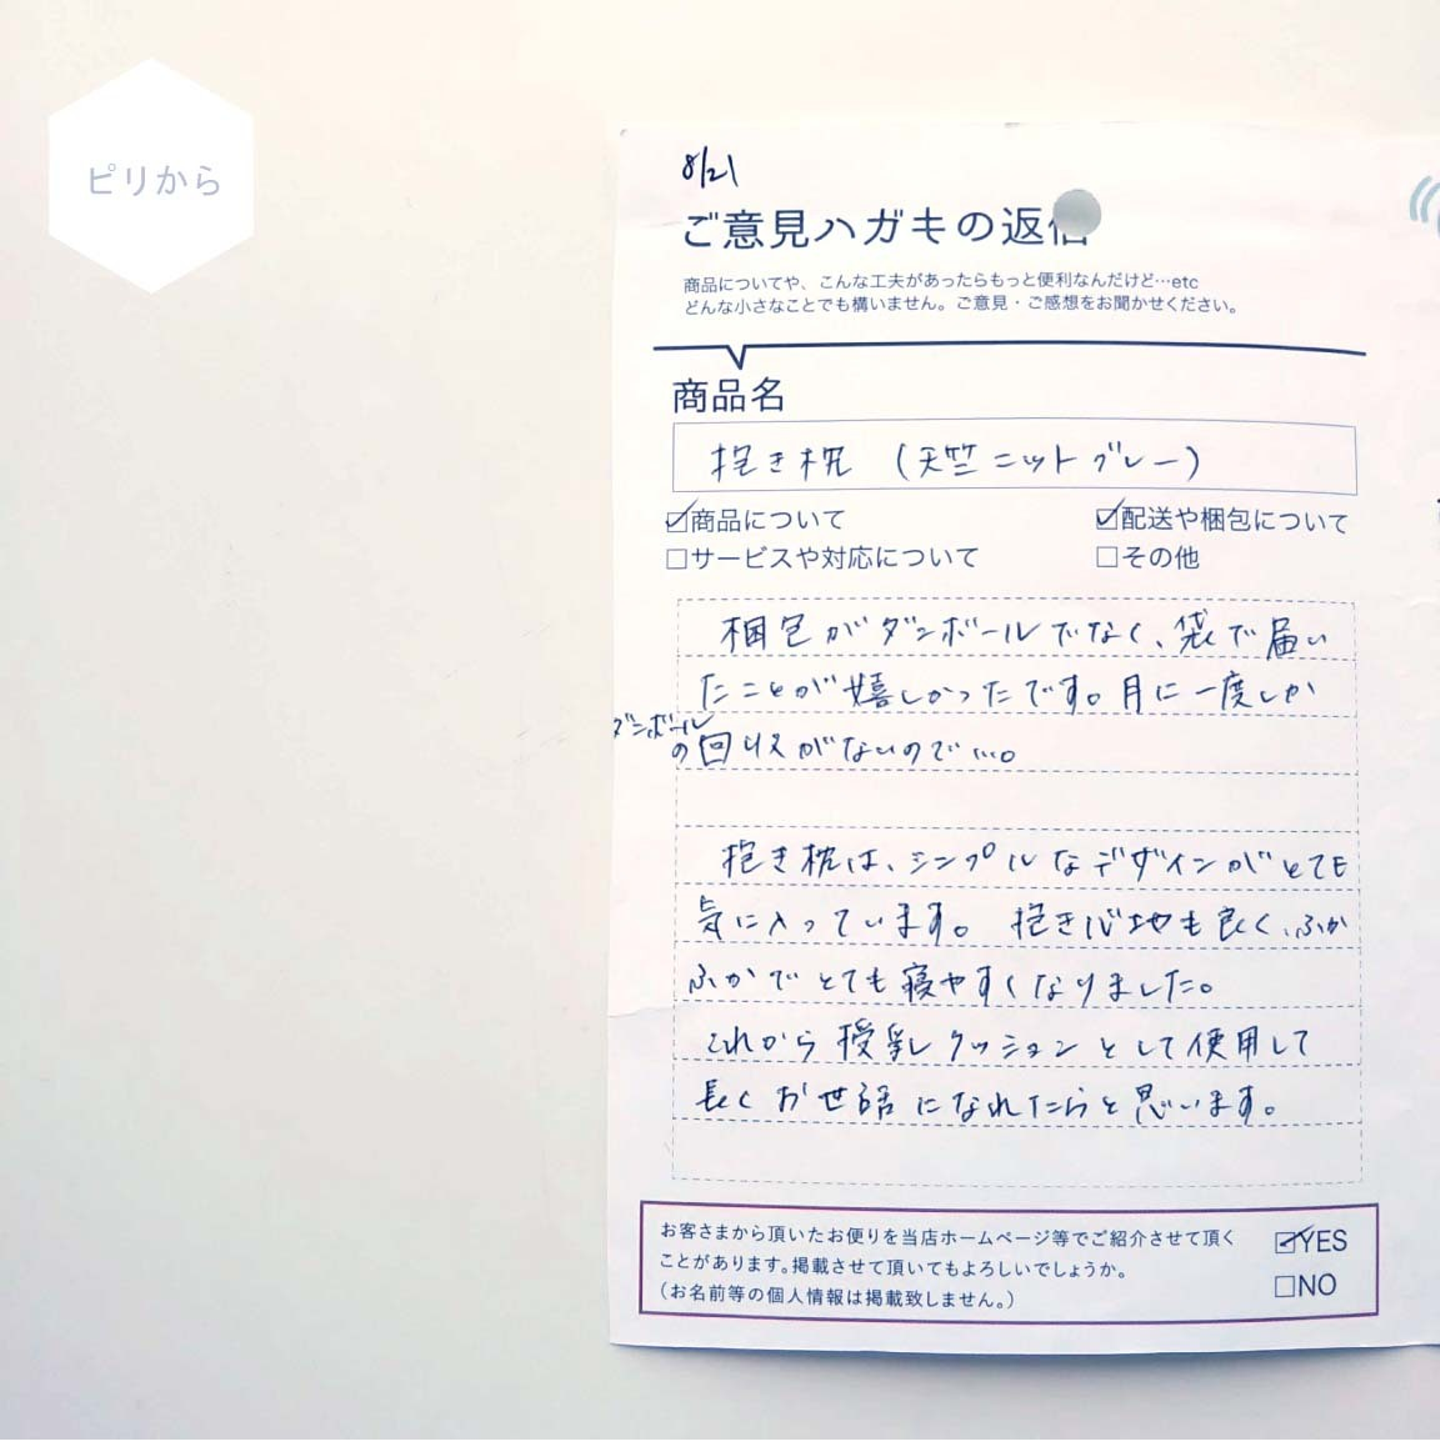 ピリから
8/21
ご意見ハガキの返信
商品についてや、こんな工夫があったらもっと便利なんだけど…etc
どんな小さなことでも構いません。ご意見・ご感想をお聞かせください。
商品名
抱き枕 (天竺ニットグレー)
☑商品について ☑配送や梱包について
☐サービスや対応について ☐その他
梱包がダンボールでなく、袋で届い
たことが嬉しかったです。月に一度しか
ダンボール
の回収がないので…。
抱き枕は、シンプルなデザインがとても
気に入っています。 抱き心地も良く、ふか
ふかでとても寝やすくなりました。
これから授乳クッションとして使用して
長くお世話になれたらと思います。
お客さまから頂いたお便りを当店ホームページ等でご紹介させて頂く
ことがあります。掲載させて頂いてもよろしいでしょうか。
(お名前等の個人情報は掲載致しません。)
☑YES
☐NO